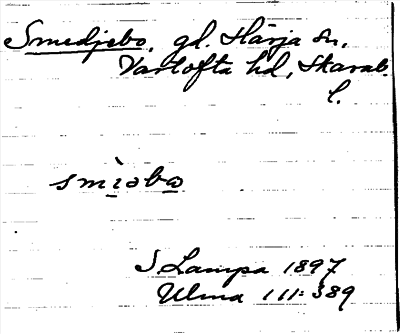 Smedjebo, gd. Härja sn,
Vartofta hd, Skarab.
l.
smìəbo
S. Lampa 1897
Ulma 111:389